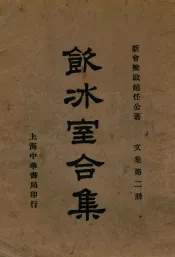 新會梁啟超任公著
文集第二册
飲冰室合集
上海中華書局印行